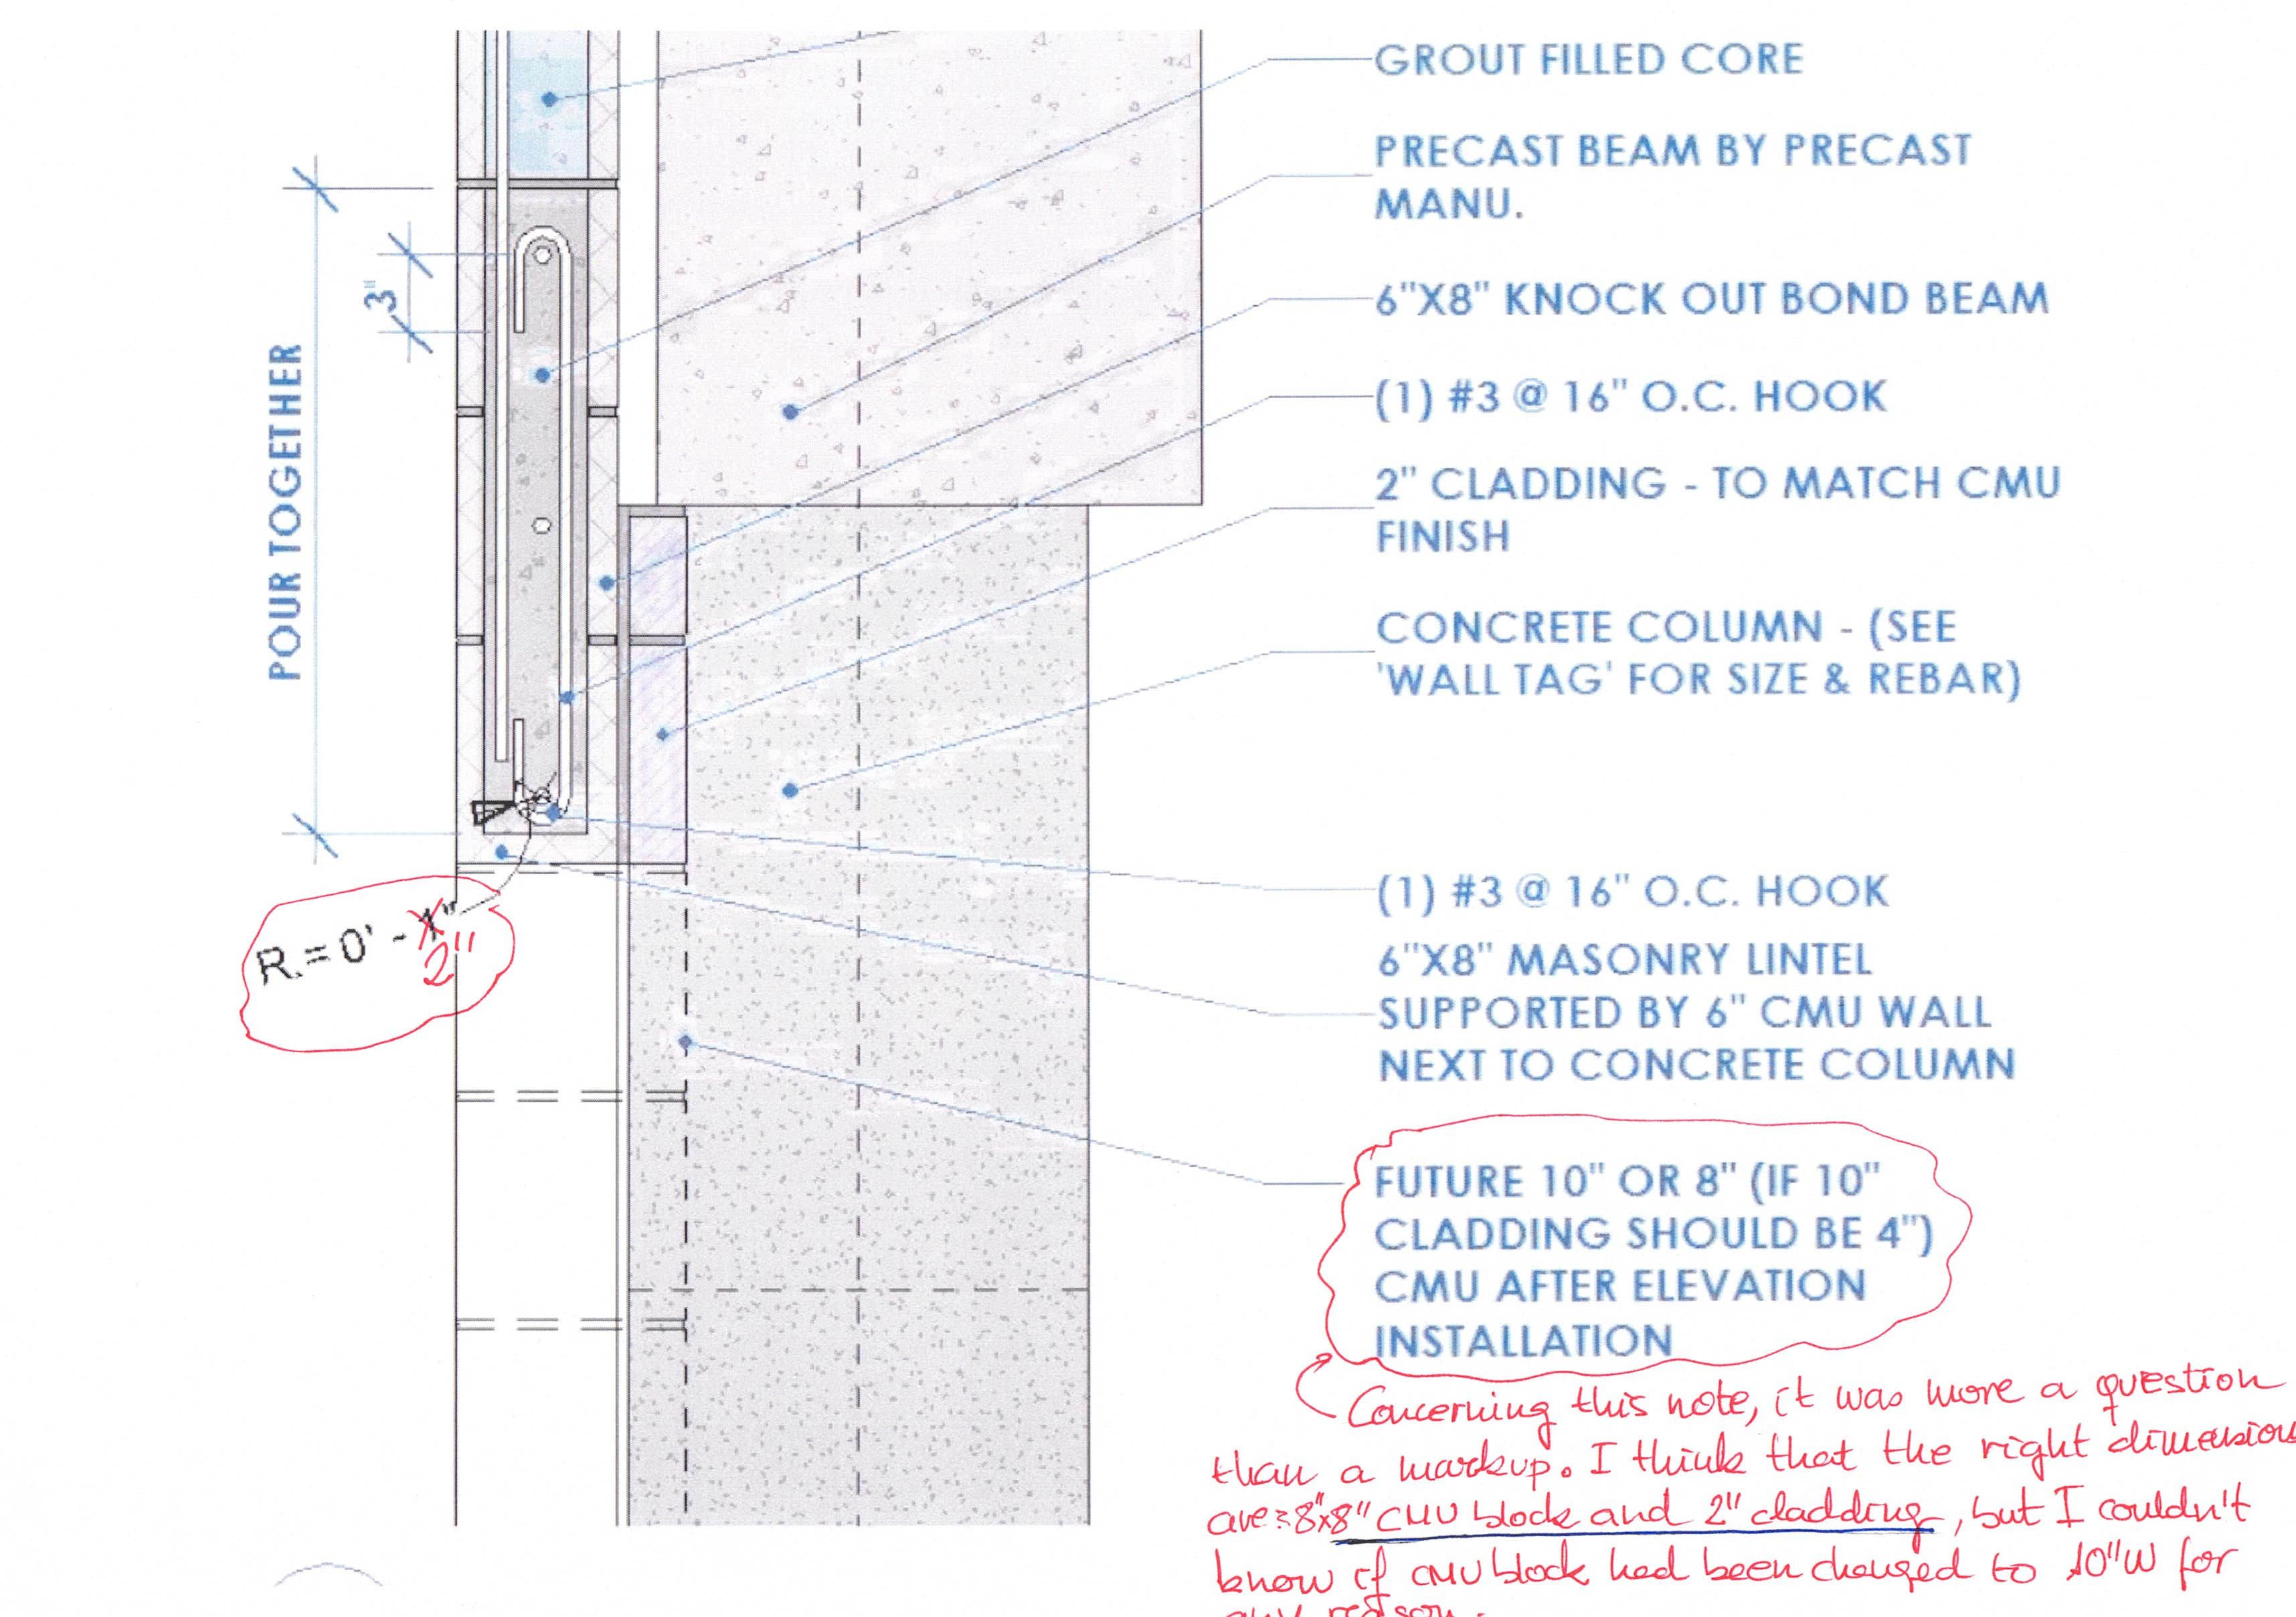 GROUT FILLED CORE
PRECAST BEAM BY PRECAST
MANU.
6"X8" KNOCK OUT BOND BEAM
(1) #3 @ 16" O.C. HOOK
2" CLADDING - TO MATCH CMU
FINISH
CONCRETE COLUMN - (SEE
'WALL TAG' FOR SIZE & REBAR)
POUR TOGETHER
3"
(1) #3 @ 16" O.C. HOOK
6"X8" MASONRY LINTEL
SUPPORTED BY 6" CMU WALL
NEXT TO CONCRETE COLUMN
R = 0' - 1"
2"
FUTURE 10" OR 8" (IF 10"
CLADDING SHOULD BE 4")
CMU AFTER ELEVATION
INSTALLATION
Concerning this note, it was more a question
than a markup. I think that the right dimensions
are: 8"x8" CMU block and 2" cladding, but I couldn't
know if CMU block had been changed to 10"W for
any reason.